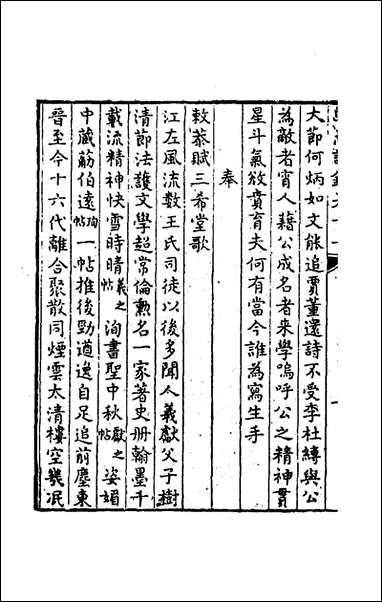 大節何炳如文能追賈董還詩不受李杜縛與公
為敵者宵人藉公成名者来學嗚呼公之精神貫
星斗氣欲賁育夫何有當今誰為寫生手
奉
敕恭賦三希堂歌
江左風流數王氏司徒以後多聞人羲獻父子樹
清節法護文學超常倫勲名一家著史册翰墨千
載流精神快雪時晴羲之帖洵書聖中秋獻之帖姿媚
中蔵筋伯遠珣帖一帖推後勁遒逸自足追前塵東
晉至今十六代離合聚散同煙雲太清樓空幾泯